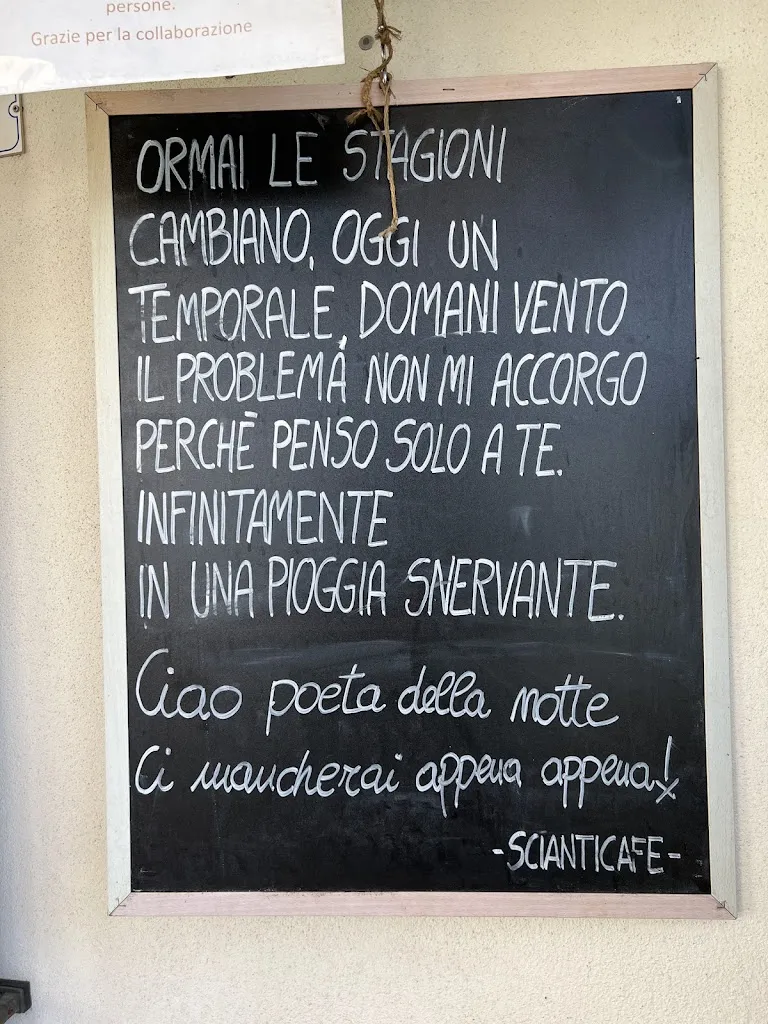 persone.
Grazie per la collaborazione
ORMAI LE STAGIONI
CAMBIANO, OGGI UN
TEMPORALE, DOMANI VENTO
IL PROBLEMA NON MI ACCORGO
PERCHÈ PENSO SOLO A TE.
INFINITAMENTE
IN UNA PIOGGIA SNERVANTE.
Ciao poeta della notte
Ci mancherai appena appena!
-SCIANTICAFE-